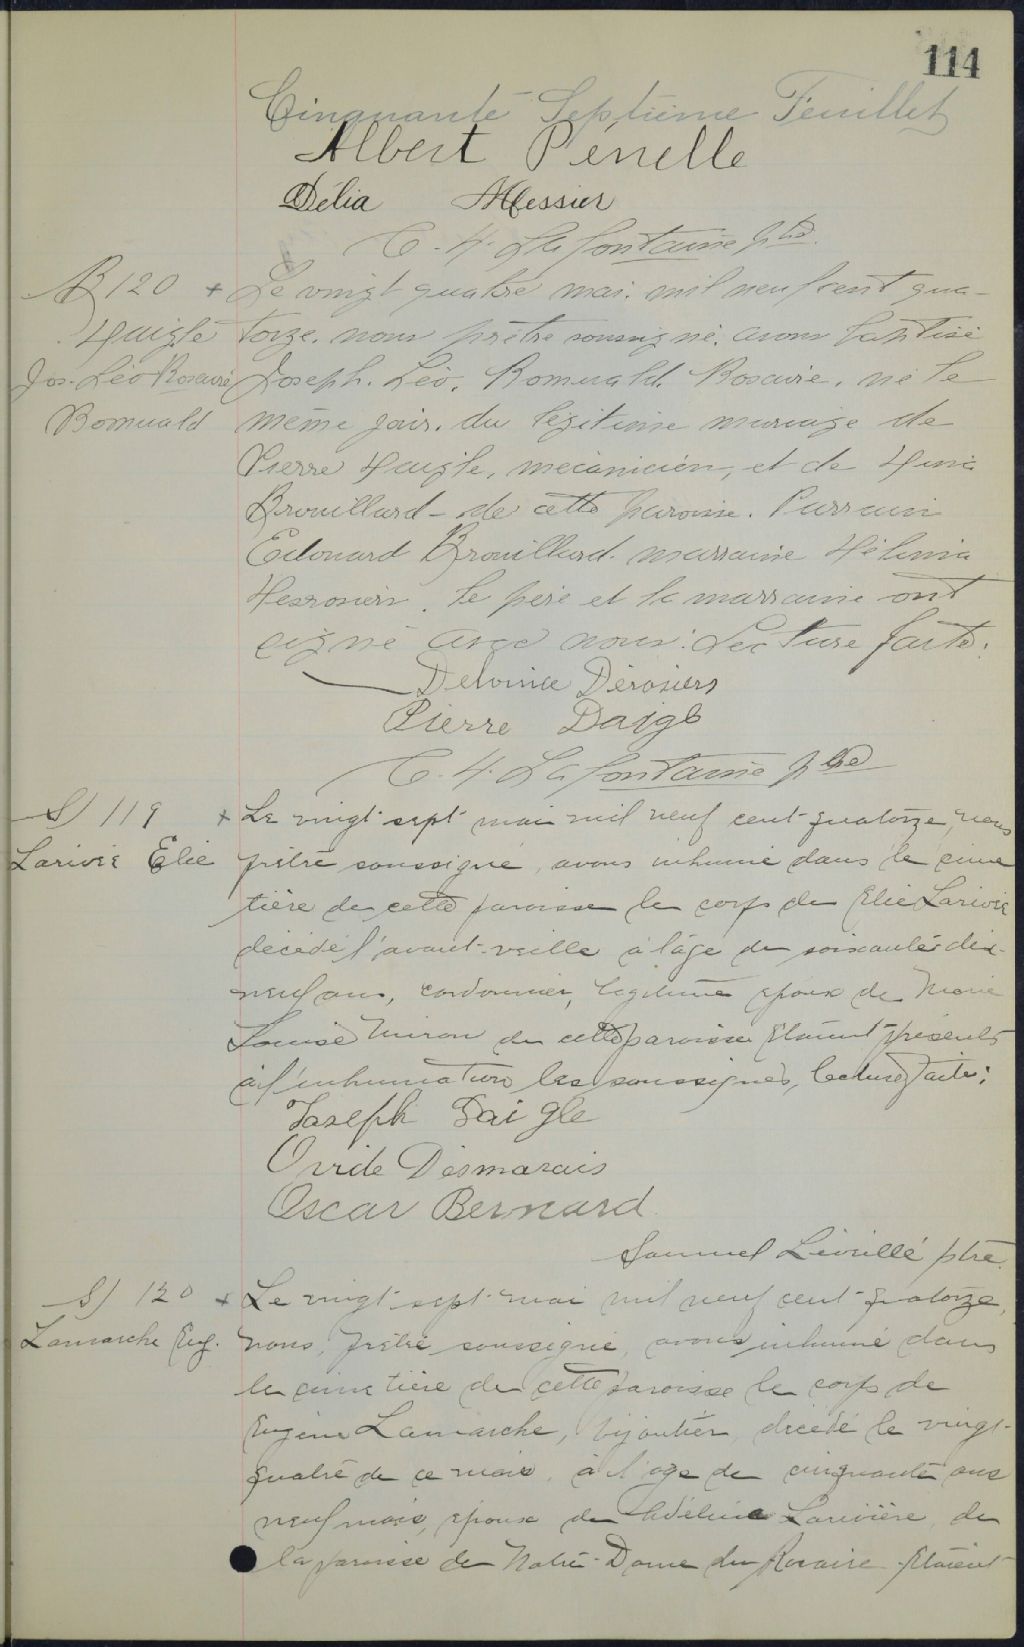 114
Cinquante Septième Feuillet
Albert Pénelle
Délia Messier
C. H. Lafontaine ptre
B 120 + Le vingt quatre mai mil neuf cent qua-
Daigle torze, nous prêtre soussigné, avons baptisé
Jos. Léo Rosaire Joseph, Léo, Romuald, Rosaire, né le
Romuald même jour, du légitime mariage de
Pierre Daigle, mécanicien, et de
Brouillard de cette paroisse. Parrain
Edouard Brouillard. marraine
Desrosiers. Le père et la marraine ont
signé avec nous. Lecture faite.
Dérosiers
Pierre Daigle
C. H. Lafontaine ptre
S 119 + Le vingt-sept mai mil neuf cent quatorze, nous
Larivée Elie prêtre soussigné, avons inhumé dans le cime
tière de cette paroisse le corps de Elie Larivée
décédé l'avant-veille à l'âge de soixante dix-
neuf ans, cordonnier, légitime époux de Marie
Louise Miron de cette paroisse. Etaient présents
à l'inhumation les soussignés, lecture faite:
Joseph Daigle
Ovide Desmarais
Oscar Bernard
Samuel Léveillé ptre
S 120 + Le vingt-sept mai mil neuf cent quatorze,
Lamarche Eug. nous, prêtre soussigné, avons inhumé dans
le cimetière de cette paroisse le corps de
Eugène Lamarche, bijoutier, décédé le vingt-
quatre de ce mois, à l'âge de cinquante ans
neuf mois, époux de Larivière, de
la paroisse de Notre-Dame du Rosaire. Etaient